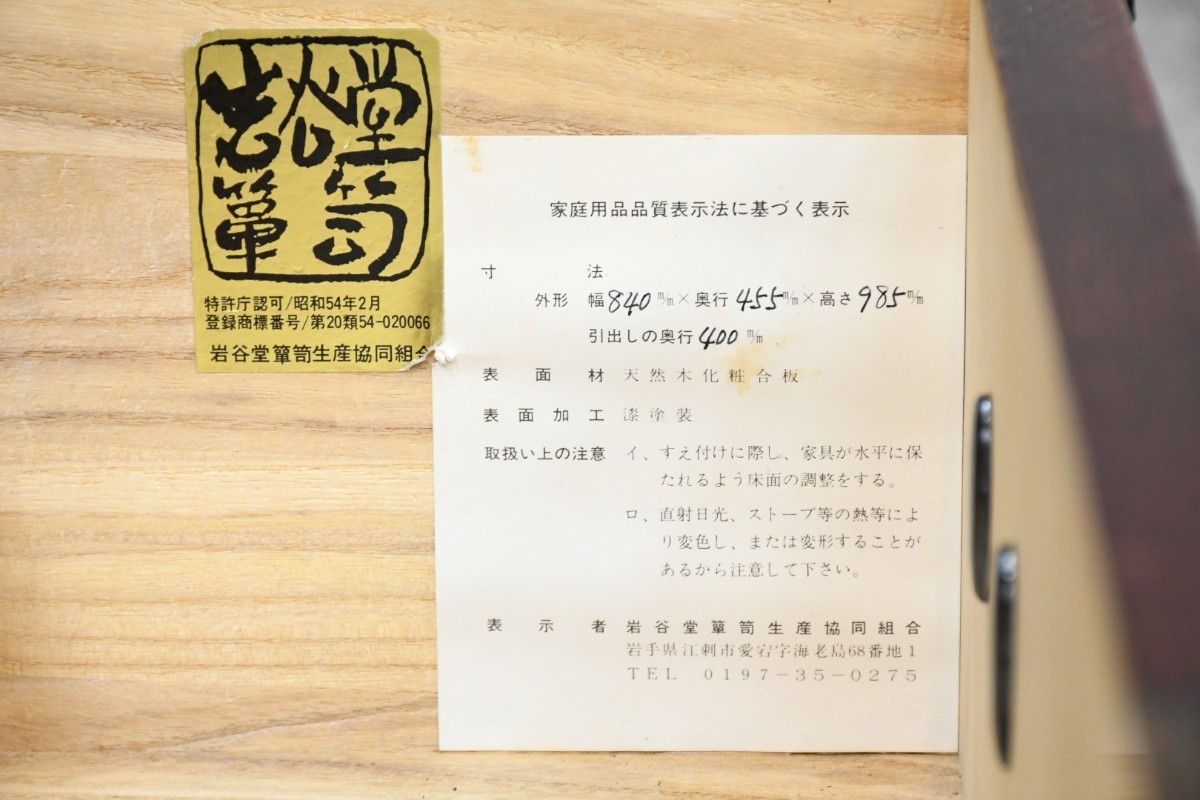 岩谷堂
箪笥
特許庁認可/昭和54年2月
登録商標番号/第20類54-020066
岩谷堂簞笥生産協同組合
家庭用品品質表示法に基づく表示
寸法
外形 幅840m/m×奥行455m/m×高さ985m/m
引出しの奥行400m/m
表面材 天然木化粧合板
表面加工 漆塗装
取扱い上の注意 イ、すえ付けに際し、家具が水平に保
たれるよう床面の調整をする。
ロ、直射日光、ストーブ等の熱等によ
り変色し、または変形することが
あるから注意して下さい。
表示者 岩谷堂簞笥生産協同組合
岩手県江刺市愛宕字海老島68番地1
TEL 0197-35-0275